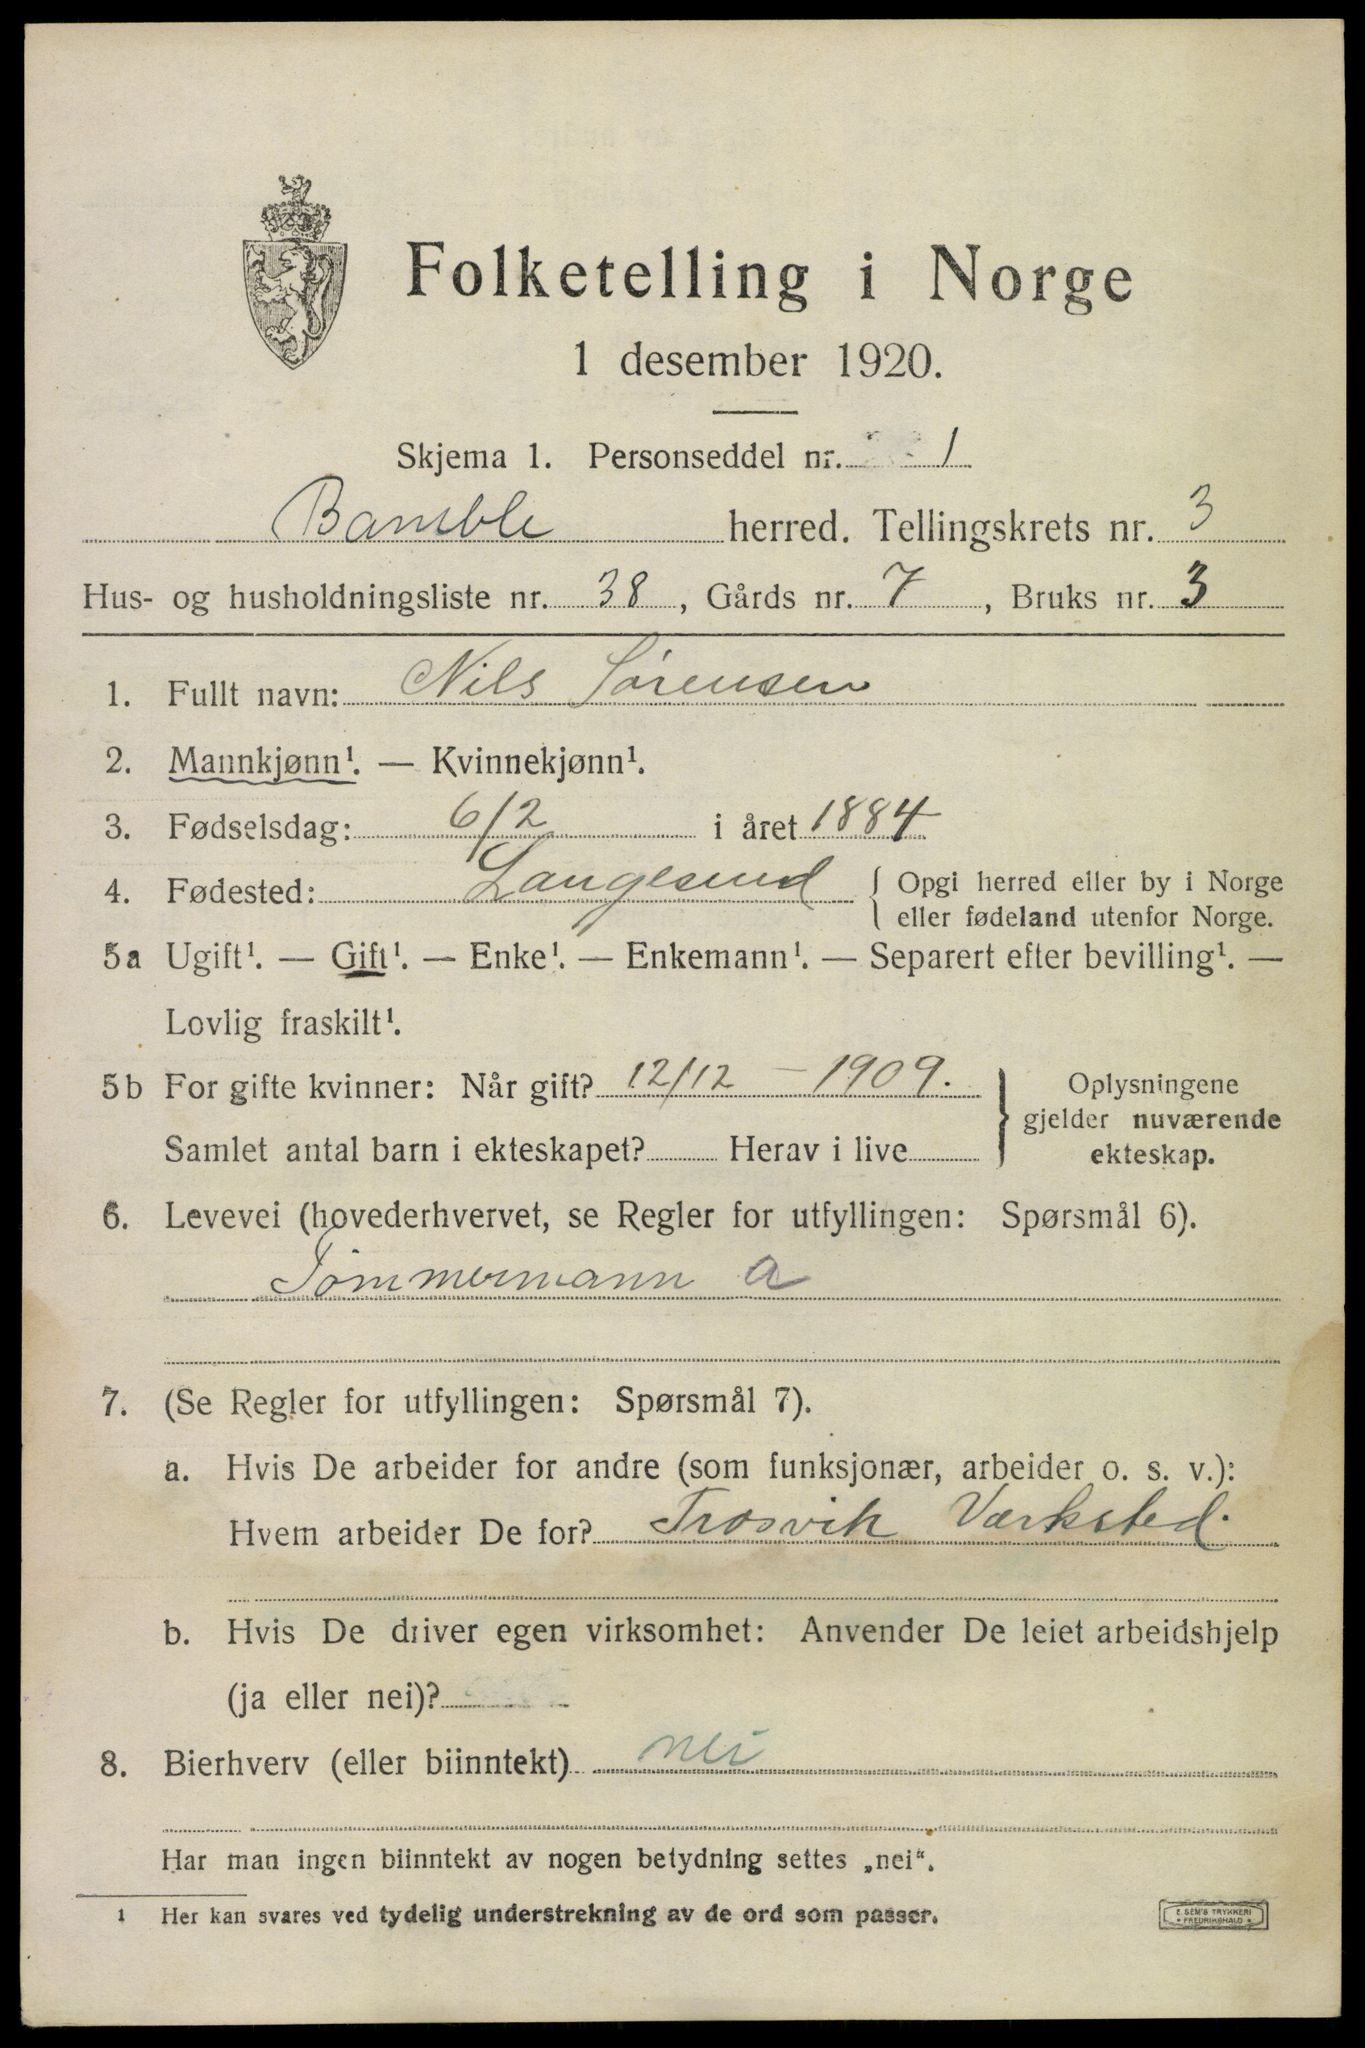 Folketelling i Norge
1 desember 1920.
Skjema 1. Personseddel nr. 1
Bamble herred. Tellingskrets nr. 3
Hus- og husholdningsliste nr. 38, Gårds nr. 7, Bruks nr. 3
1. Fullt navn: Nils Sörensen
2. Mannkjønn¹. — Kvinnekjønn¹.
3. Fødselsdag: 6/2 i året 1884
4. Fødested: Langesund { Opgi herred eller by i Norge
eller fødeland utenfor Norge.
5a Ugift¹. — Gift¹. — Enke¹. — Enkemann¹. — Separert efter bevilling¹. —
Lovlig fraskilt¹.
5b For gifte kvinner: Når gift? 12/12 – 1909. } Oplysningene
gjelder nuværende
Samlet antal barn i ekteskapet? Herav i live ekteskap.
6. Levevei (hovederhvervet, se Regler for utfyllingen: Spørsmål 6).
Tömmermann a
7. (Se Regler for utfyllingen: Spørsmål 7).
a. Hvis De arbeider for andre (som funksjonær, arbeider o. s. v.):
Hvem arbeider De for? Trosvik Værksted.
b. Hvis De driver egen virksomhet: Anvender De leiet arbeidshjelp
(ja eller nei)?
8. Bierhverv (eller biinntekt) nei
Har man ingen biinntekt av nogen betydning settes „nei“.
1 Her kan svares ved tydelig understrekning av de ord som passer.
E. SEM'S TRYKKERI
* FREDRIKSHALD *